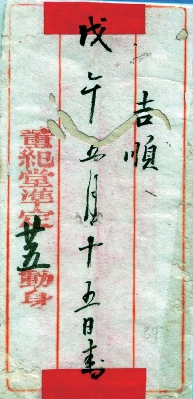 吉順
戊午五月十五日書
蕾紀堂準定廿五動身